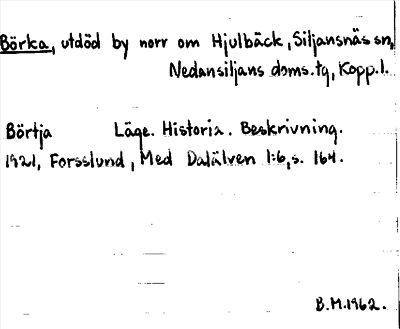 Börka, utdöd by norr om Hjulbäck, Siljansnäs sn,
Nedansiljans doms.tg, Kopp.l.
Börtja Läge. Historia. Beskrivning.
1921, Forsslund, Med Dalälven 1:6, s. 164.
B.M.1962.